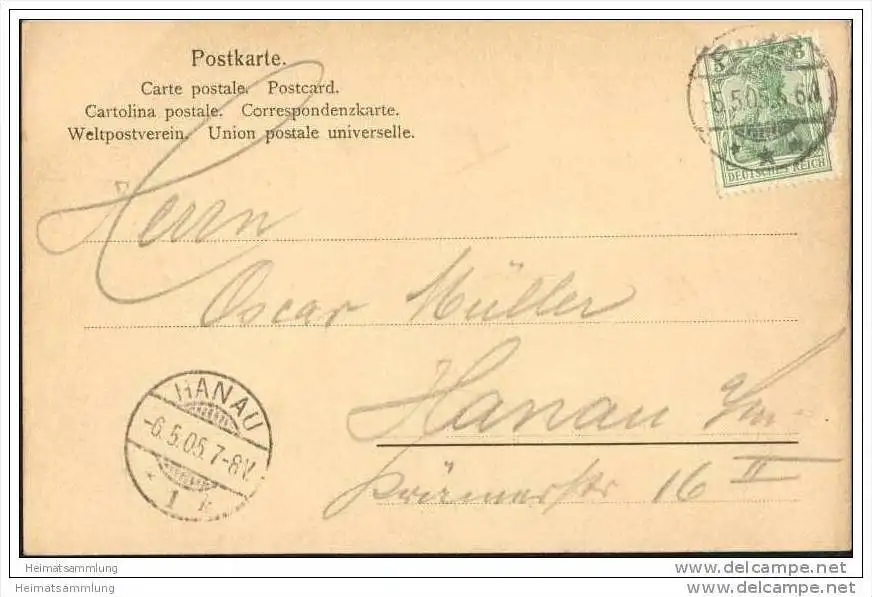 Postkarte.
Carte postale. Postcard.
Cartolina postale. Correspondenzkarte.
Weltpostverein. Union postale universelle.
5 5
5.5.05. 5-6N
DEUTSCHES REICH
Herrn
Oscar Müller
Hanau a/m
Krämerstr 16 II
HANAU
-6.5.05. 7-8V.
* 1 k
Heimatsammlung
Heimatsammlung
www.delcampe.net
www.delcampe.net